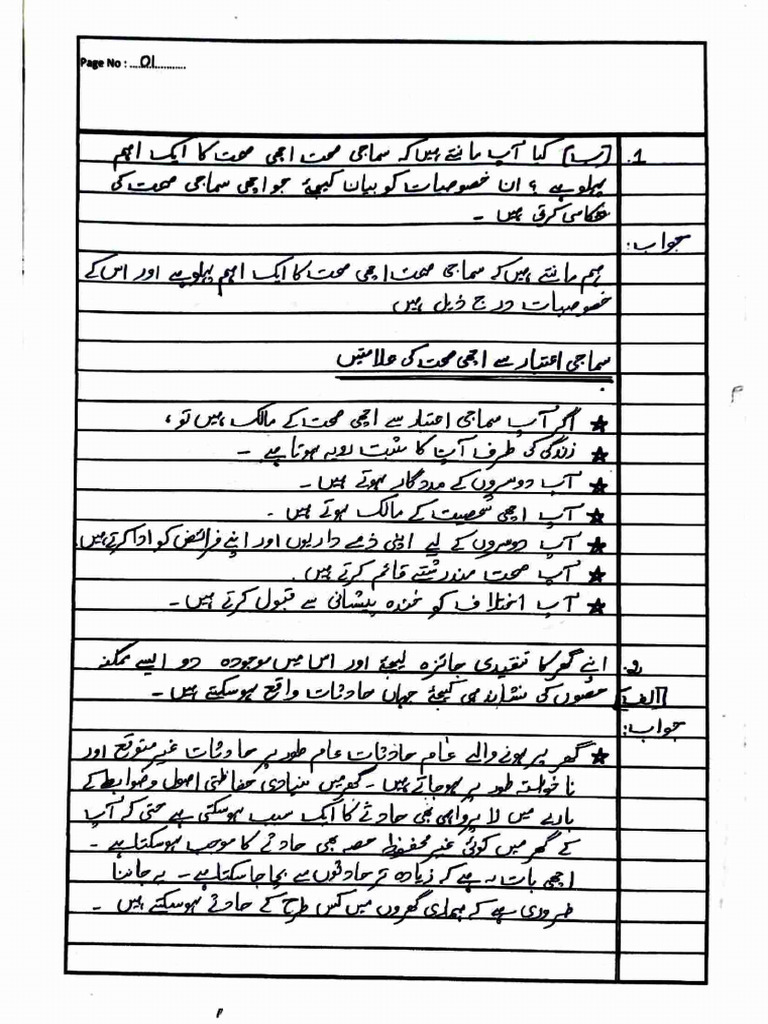 Page No : 01
1. (ب) کیا آپ مانتے ہیں کہ سماجی صحت اچھی صحت کا ایک اہم
پہلو ہے؟ ان خصوصیات کو بیان کیجیۓ جو اچھی سماجی صحت کی
عکاسی کرتی ہیں ۔
جواب:
ہم مانتے ہیں کہ سماجی صحت اچھی صحت کا ایک اہم پہلو ہے اور اس کے
خصوصیات درج ذیل ہیں
سماجی اعتبار سے اچھی صحت کی علامتیں
★ اگر آپ سماجی اعتبار سے اچھی صحت کے مالک ہیں تو ،
★ زندگی کی طرف آپ کا مثبت رویہ ہوتا ہے ۔
★ آپ دوسروں کے مددگار ہوتے ہیں ۔
★ آپ اچھی شخصیت کے مالک ہوتے ہیں ۔
★ آپ دوسروں کے لیے اپنی ذمے داریوں اور اپنے فرائض کو ادا کرتے ہیں
★ آپ صحت مند رشتے قائم کرتے ہیں ۔
★ آپ اختلاف کو خندہ پیشانی سے قبول کرتے ہیں ۔
2. اپنے گھر کا تنقیدی جائزہ لیجیۓ اور اس میں موجودہ دو ایسے ممکنہ
(الف) حصوں کی نشاندہی کیجیۓ جہاں حادثات واقع ہو سکتے ہیں ۔
جواب:
★ گھر پر ہونے والے عام حادثات عام طور پر حادثات غیر متوقع اور
نا خواستہ طور پر ہو جاتے ہیں ۔ گھر میں بنیادی حفاظتی اصول و ضوابط کے
بارے میں لا پرواہی بھی حادثے کا ایک سبب ہو سکتی ہے حتی کہ آپ
کے گھر میں کوئی غیر محفوظ حصہ بھی حادثے کا موجب ہو سکتا ہے ۔
اچھی بات یہ ہے کہ زیادہ تر حادثوں سے بچا جا سکتا ہے ۔ یہ جاننا
ضروری ہے کہ ہماری گھروں میں کس طرح کے حادثے ہو سکتے ہیں ۔